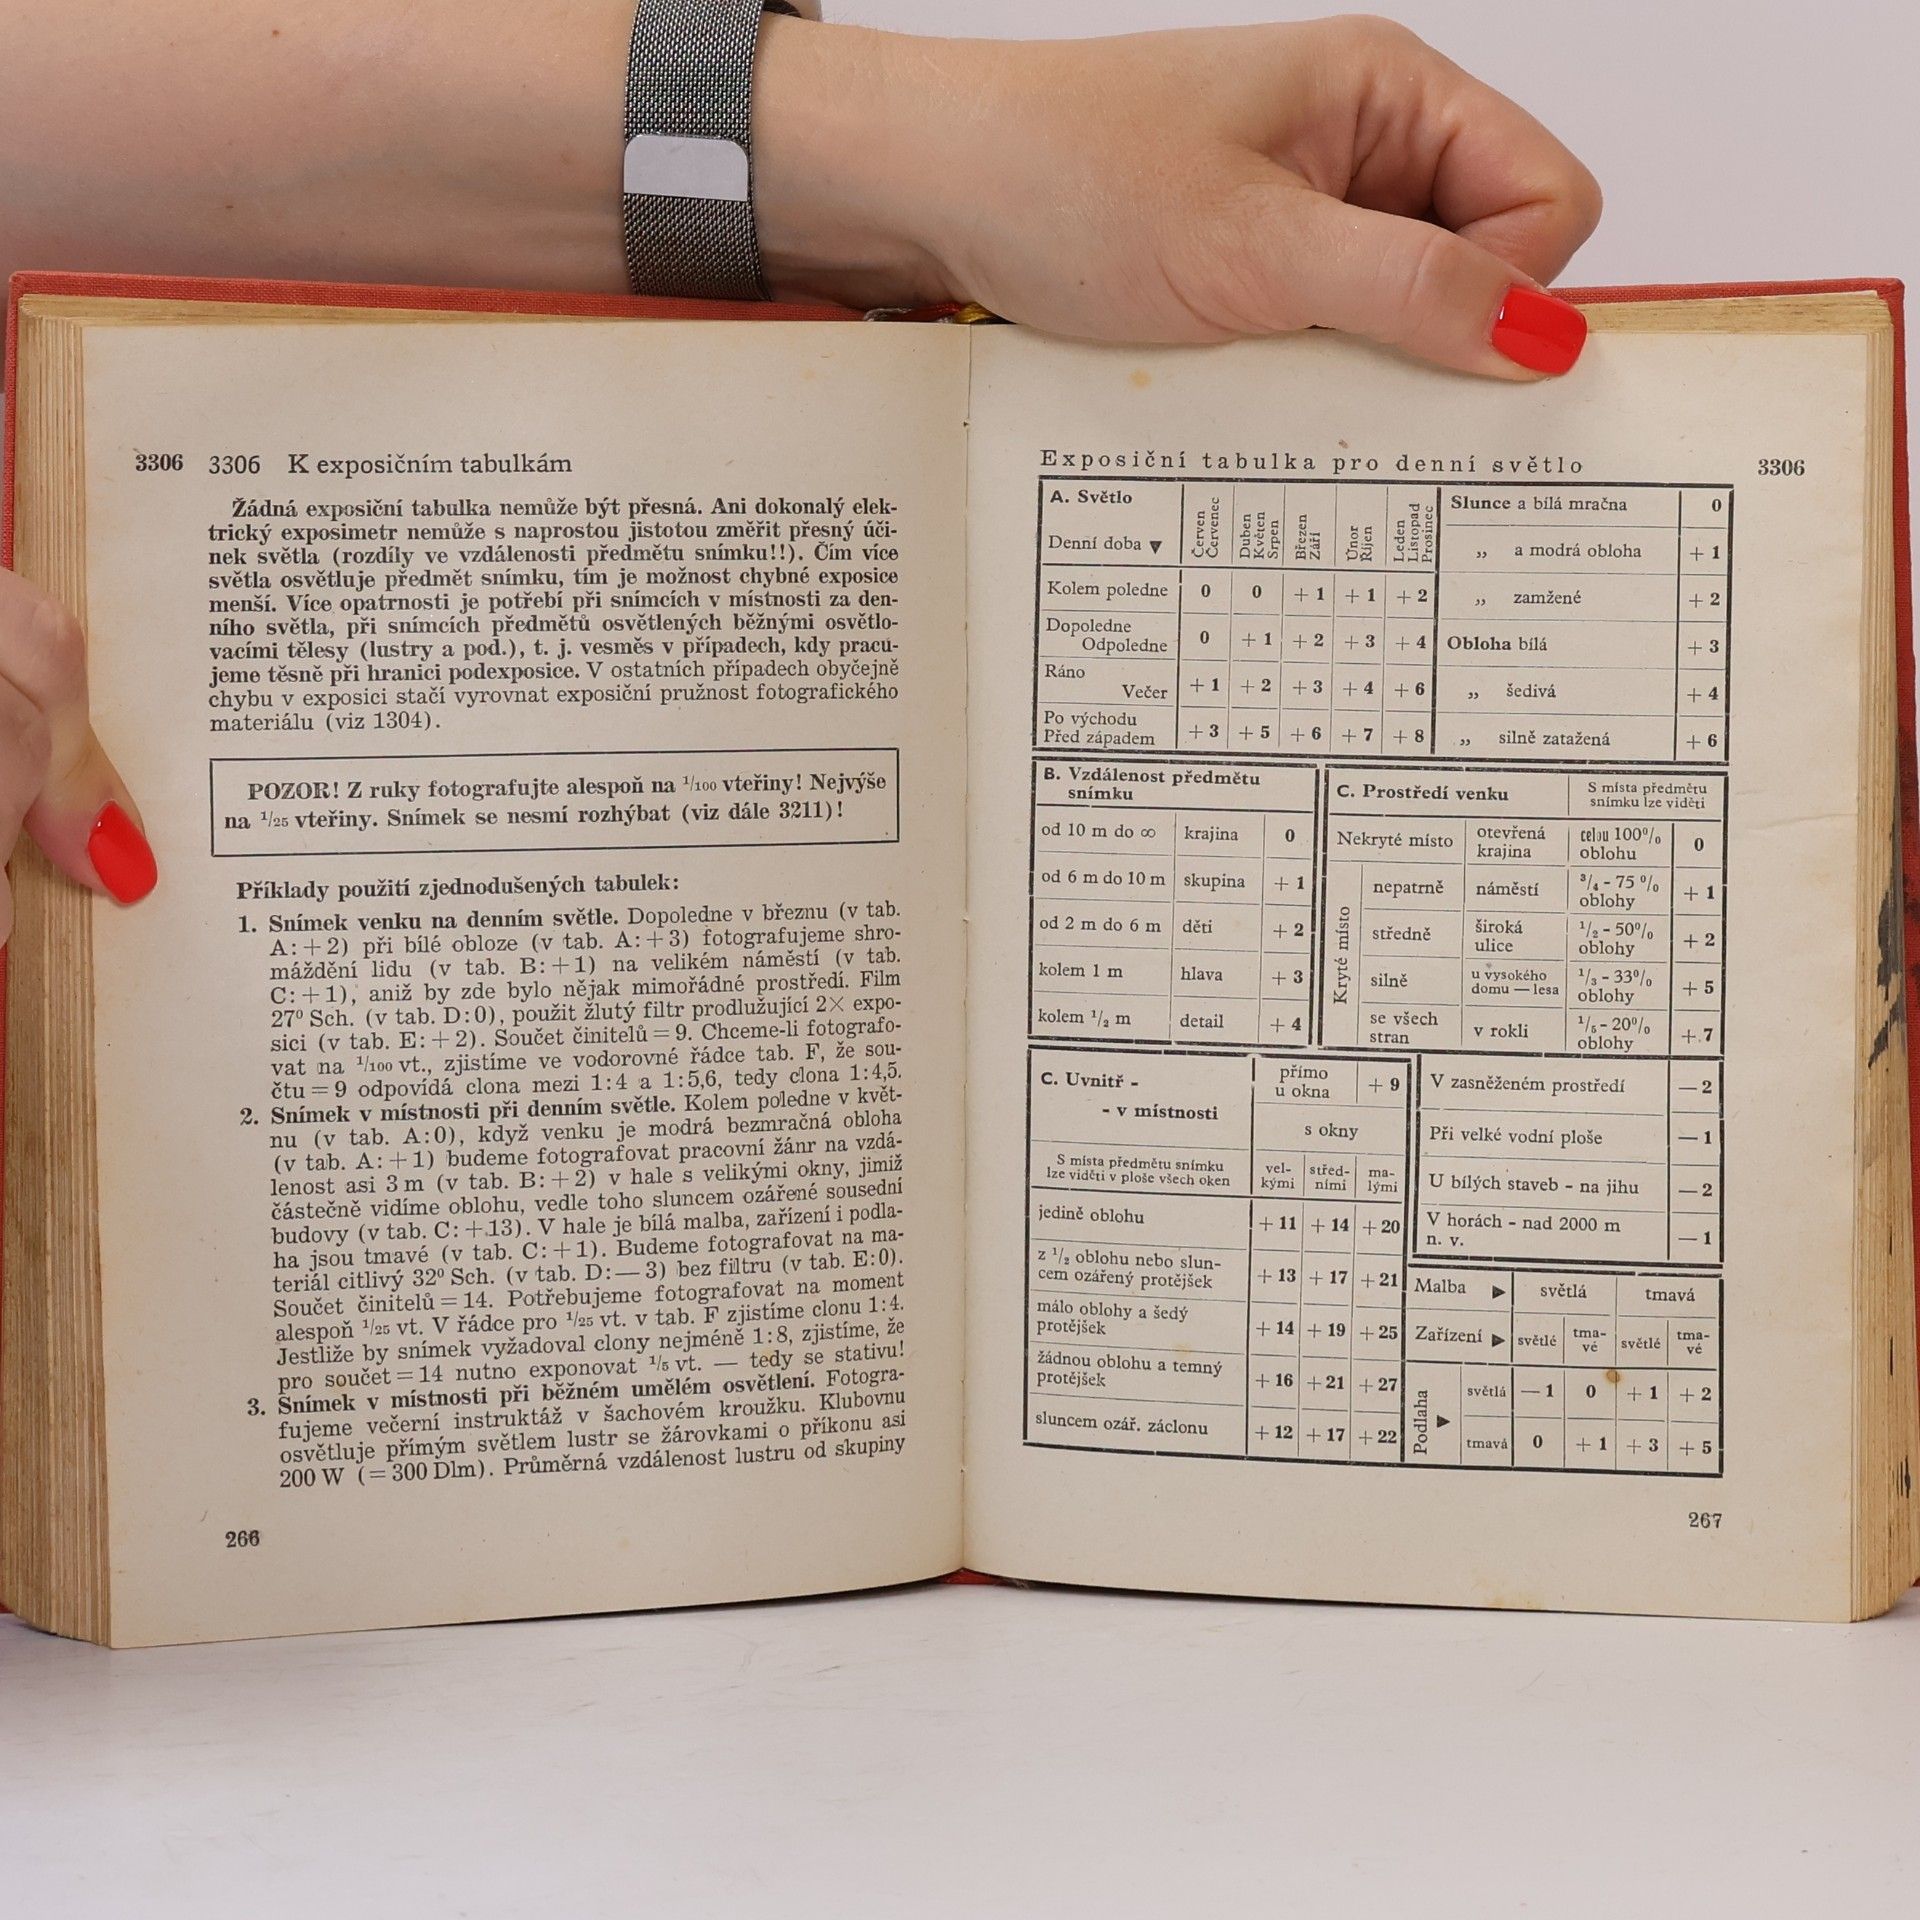 3306 3306 K exposičním tabulkám
Žádná exposiční tabulka nemůže být přesná. Ani dokonalý elek-
trický exposimetr nemůže s naprostou jistotou změřit přesný úči-
nek světla (rozdíly ve vzdálenosti předmětu snímku!!). Čím více
světla osvětluje předmět snímku, tím je možnost chybné exposice
menší. Více opatrnosti je potřebí při snímcích v místnosti za den-
ního světla, při snímcích předmětů osvětlených běžnými osvětlo-
vacími tělesy (lustry a pod.), t. j. vesměs v případech, kdy pracu-
jeme těsně při hranici podexposice. V ostatních případech obyčejně
chybu v exposici stačí vyrovnat exposiční pružnost fotografického
materiálu (viz 1304).
POZOR! Z ruky fotografujte alespoň na 1/100 vteřiny! Nejvýše
na 1/25 vteřiny. Snímek se nesmí rozhýbat (viz dále 3211)!
Příklady použití zjednodušených tabulek:
1. Snímek venku na denním světle. Dopoledne v březnu (v tab.
A: + 2) při bílé obloze (v tab. A: + 3) fotografujeme shro-
máždění lidu (v tab. B: + 1) na velikém náměstí (v tab.
C: + 1), aniž by zde bylo nějak mimořádné prostředí. Film
27° Sch. (v tab. D: 0), použit žlutý filtr prodlužující 2× expo-
sici (v tab. E: + 2). Součet činitelů = 9. Chceme-li fotografo-
vat na 1/100 vt., zjistíme ve vodorovné řádce tab. F, že sou-
čtu = 9 odpovídá clona mezi 1:4 a 1:5,6, tedy clona 1:4,5.
2. Snímek v místnosti při denním světle. Kolem poledne v květ-
nu (v tab. A: 0), když venku je modrá bezmračná obloha
(v tab. A: + 1) budeme fotografovat pracovní žánr na vzdá-
lenost asi 3 m (v tab. B: + 2) v hale s velikými okny, jimiž
částečně vidíme oblohu, vedle toho sluncem ozářené sousední
budovy (v tab. C: + 13). V hale je bílá malba, zařízení i podla-
ha jsou tmavé (v tab. C: + 1). Budeme fotografovat na ma-
teriál citlivý 32° Sch. (v tab. D: — 3) bez filtru (v tab. E: 0).
Součet činitelů = 14. Potřebujeme fotografovat na moment
alespoň 1/25 vt. V řádce pro 1/25 vt. v tab. F zjistíme clonu 1:4.
Jestliže by snímek vyžadoval clony nejméně 1:8, zjistíme, že
pro součet = 14 nutno exponovat 1/5 vt. — tedy se stativu!
3. Snímek v místnosti při běžném umělém osvětlení. Fotogra-
fujeme večerní instruktáž v šachovém kroužku. Klubovnu
osvětluje přímým světlem lustr se žárovkami o příkonu asi
200 W (= 300 Dlm). Průměrná vzdálenost lustru od skupiny
266
Exposiční tabulka pro denní světlo 3306
A. Světlo
Denní doba ▼
Červen
Červenec
Duben
Květen
Srpen
Březen
Září
Únor
Říjen
Leden
Listopad
Prosinec
Kolem poledne 0 0 + 1 + 1 + 2
Dopoledne
Odpoledne 0 + 1 + 2 + 3 + 4
Ráno
Večer + 1 + 2 + 3 + 4 + 6
Po východu
Před západem + 3 + 5 + 6 + 7 + 8
Slunce a bílá mračna 0
„ a modrá obloha + 1
„ zamžené + 2
Obloha bílá + 3
„ šedivá + 4
„ silně zatažená + 6
B. Vzdálenost předmětu
snímku
od 10 m do ∞ krajina 0
od 6 m do 10 m skupina + 1
od 2 m do 6 m děti + 2
kolem 1 m hlava + 3
kolem 1/2 m detail + 4
C. Prostředí venku
S místa předmětu
snímku lze viděti
Nekryté místo otevřená krajina celou 100% oblohu 0
Kryté místo
nepatrně náměstí 3/4 - 75 % oblohy + 1
středně široká ulice 1/2 - 50% oblohy + 2
silně u vysokého domu — lesa 1/3 - 33% oblohy + 5
se všech stran v rokli 1/5 - 20% oblohy + 7
C. Uvnitř -
- v místnosti
přímo
u okna + 9
s okny
S místa předmětu snímku
lze viděti v ploše všech oken
vel-
kými
střed-
ními
ma-
lými
jedině oblohu + 11 + 14 + 20
z 1/2 oblohu nebo slun-
cem ozářený protějšek + 13 + 17 + 21
málo oblohy a šedý
protějšek + 14 + 19 + 25
žádnou oblohu a temný
protějšek + 16 + 21 + 27
sluncem ozář. záclonu + 12 + 17 + 22
V zasněženém prostředí — 2
Při velké vodní ploše — 1
U bílých staveb - na jihu — 2
V horách - nad 2000 m
n. v. — 1
Malba ▶ světlá tmavá
Zařízení ▶ světlé tma-
vé světlé tma-
vé
Podlaha ▼
světlá — 1 0 + 1 + 2
tmavá 0 + 1 + 3 + 5
267